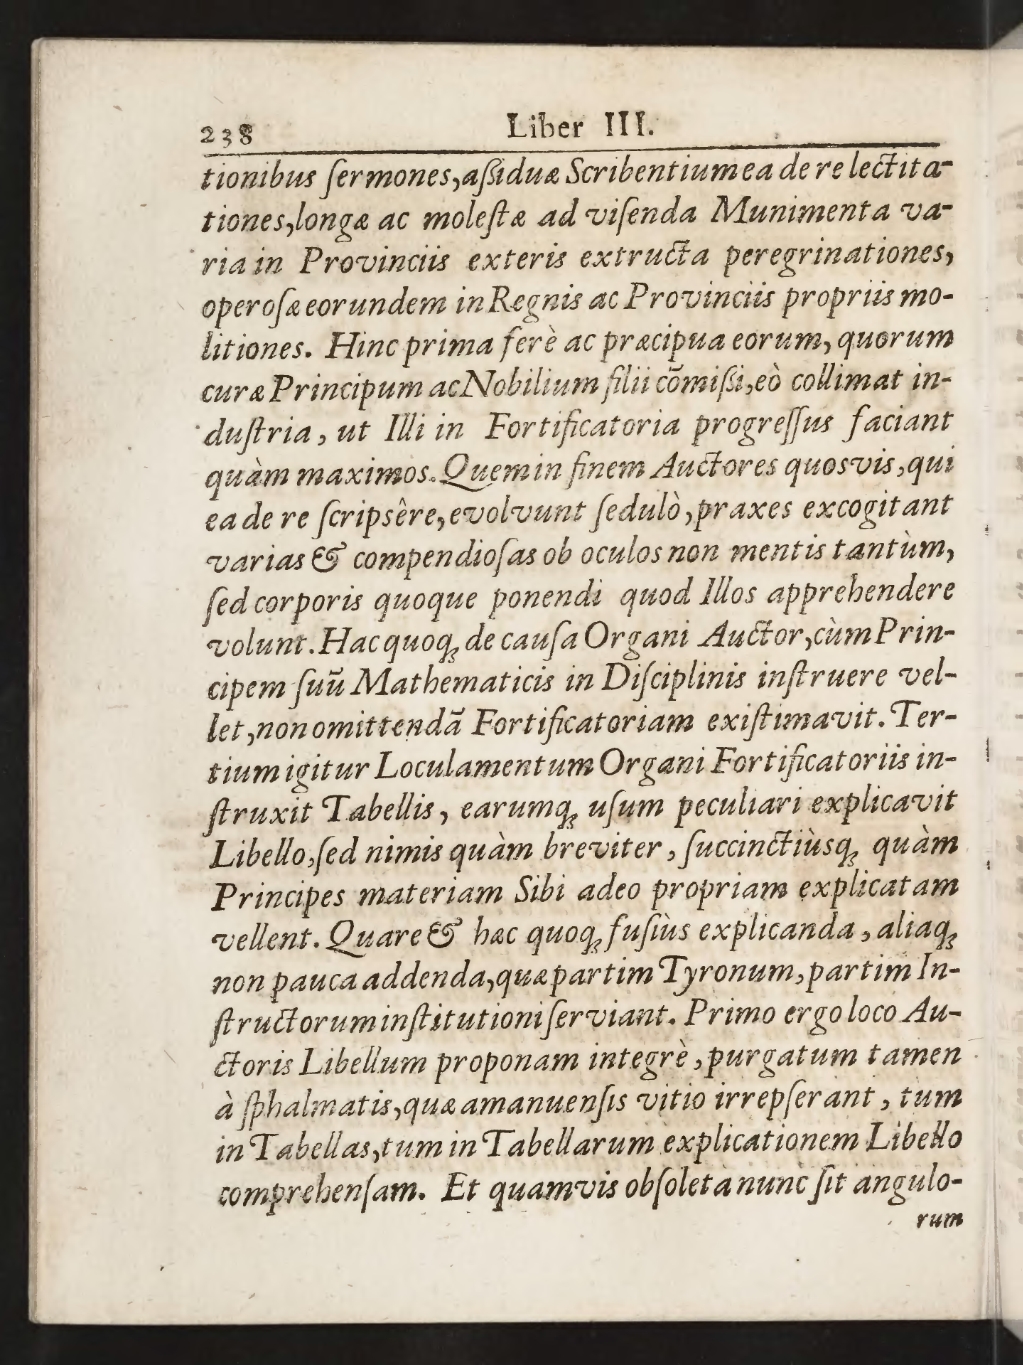 238 Liber III.
tionibus ſermones, aſſiduæ Scribentium ea de re lectita-
tiones, longæ ac moleſtæ ad viſenda Munimenta va-
ria in Provinciis exteris extructa peregrinationes,
operoſæ eorundem in Regnis ac Provinciis propriis mo-
litiones. Hinc prima ferè ac præcipua eorum, quorum
curæ Principum ac Nobilium filii cõmiſſi, eò collimat in-
duſtria, ut Illi in Fortificatoria progreſſus faciant
quàm maximos. Quem in finem Auctores quosvis, qui
ea de re ſcripsêre, evolvunt ſedulò, praxes excogitant
varias & compendioſas ob oculos non mentis tantùm,
ſed corporis quoque ponendi quod Illos apprehendere
volunt. Hac quoq; de cauſa Organi Auctor, cùm Prin-
cipem ſuũ Mathematicis in Diſciplinis inſtruere vel-
let, non omittendã Fortificatoriam exiſtimavit. Ter-
tium igitur Loculamentum Organi Fortificatoriis in-
ſtruxit Tabellis, earumq; uſum peculiari explicavit
Libello, ſed nimis quàm breviter, ſuccinctiùsq; quàm
Principes materiam Sibi adeo propriam explicatam
vellent. Quare & hæc quoq; fuſiùs explicanda, aliaq;
non pauca addenda, quæ partim Tyronum, partim In-
ſtructorum inſtitutioni ſerviant. Primo ergo loco Au-
ctoris Libellum proponam integrè, purgatum tamen
à ſphalmatis, quæ amanuenſis vitio irrepſerant, tum
in Tabellas, tum in Tabellarum explicationem Libello
comprehenſam. Et quamvis obſoleta nunc ſit angulo-
rum